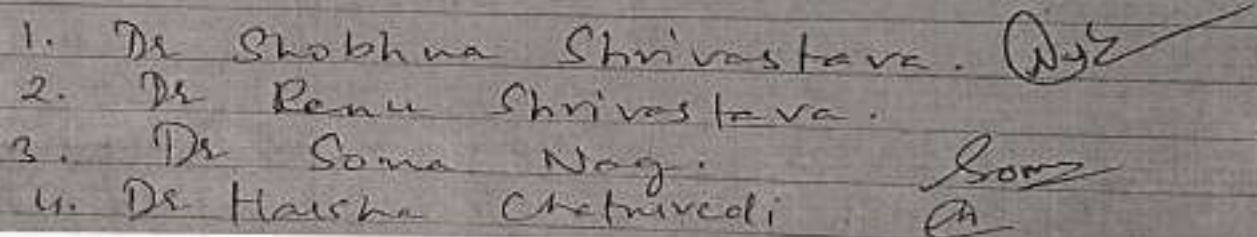 1. Dr Shobhna Shrivastava.
2. Dr Renu Shrivastava.
3. Dr Soma Nag. Soma
4. Dr Harsha Chaturvedi